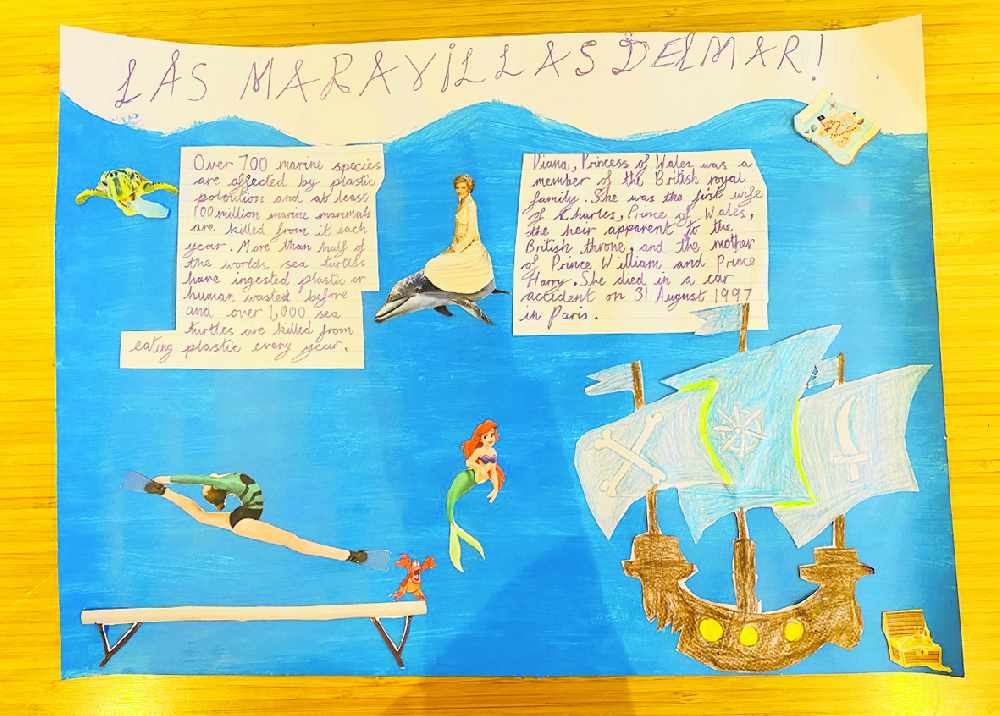 LAS MARAVILLAS DEL MAR!
Over 700 marine species
are affected by plastic
polution and at least
100 million marine mammals
are killed from it each
year. More than half of
the worlds sea turtles
have ingested plastic or
human wasted before
and over 1,000 sea
turtles are killed from
eating plastic every year.
Diana, Princess of Wales was a
member of the British royal
family. She was the first wife
of Charles, Prince of Wales,
the heir apparent to the
British throne, and the mother
of Prince William and Prince
Harry. She died in a car
accident on 31 August 1997
in Paris.